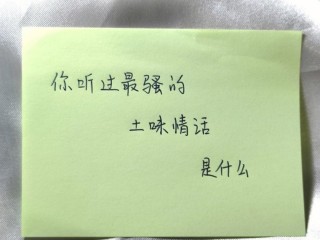 你听过最骚的
土味情话
是什么